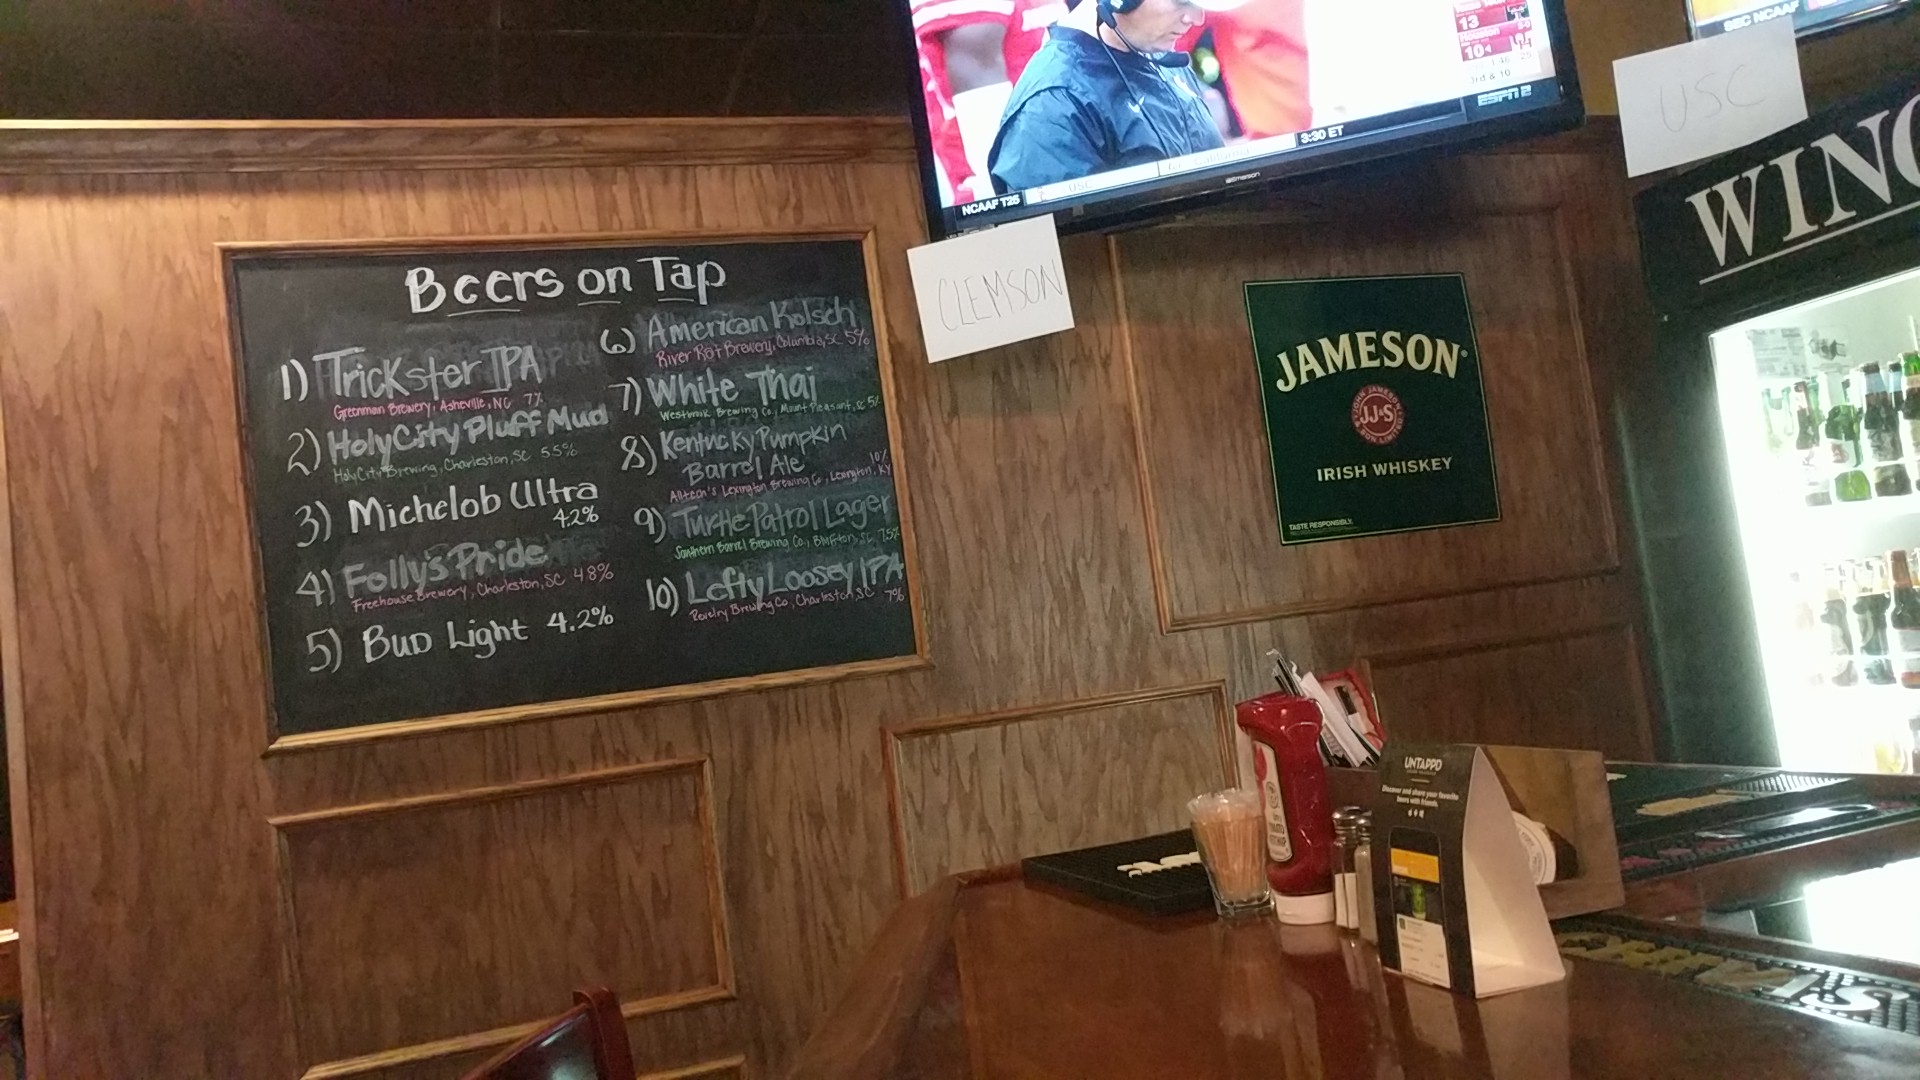 Beers on Tap
1) Trickster IPA
Greenman Brewery, Asheville, NC 7%
2) Holy City Pluff Mud
Holy City Brewing, Charleston, SC 5.5%
3) Michelob Ultra
4.2%
4) Folly's Pride
Freehouse Brewery, Charleston, SC 4.8%
5) Bud Light 4.2%
6) American Kolsch
River Rat Brewery, Columbia, SC 5%
7) White Thai
Westbrook Brewing Co., Mount Pleasant, SC 5%
8) Kentucky Pumpkin
Barrel Ale
10%
Alltech's Lexington Brewing Co., Lexington, KY
9) Turtle Patrol Lager
Southern Barrel Brewing Co., Bluffton, SC 7.5%
10) Lefty Loosey IPA
Revelry Brewing Co., Charleston, SC 7%
13
Houston
10
3rd & 10
ESPN 2
3:30 ET
California
USC
NCAAF T25
Emerson
CLEMSON
SEC NCAAF
USC
WING
JAMESON
JOHN JAMESON
JJ&S
& SON LIMITED
IRISH WHISKEY
TASTE RESPONSIBLY.
TOMATO
KETCHUP
UNTAPPD
Discover and share your favorite
beers with friends.